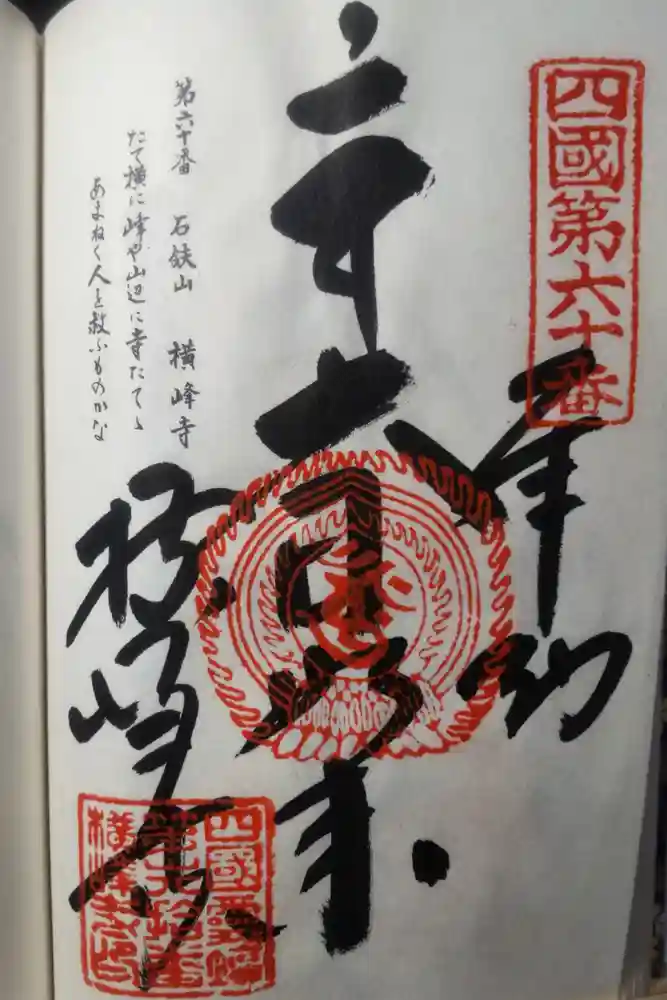 四國第六十番
奉納
大日如来
横峰寺
第六十番 石鉄山 横峰寺
たて横に峰や山辺に寺たてゝ
あまねく人を救ふものかな
四國霊場
第六拾番
横峰寺印